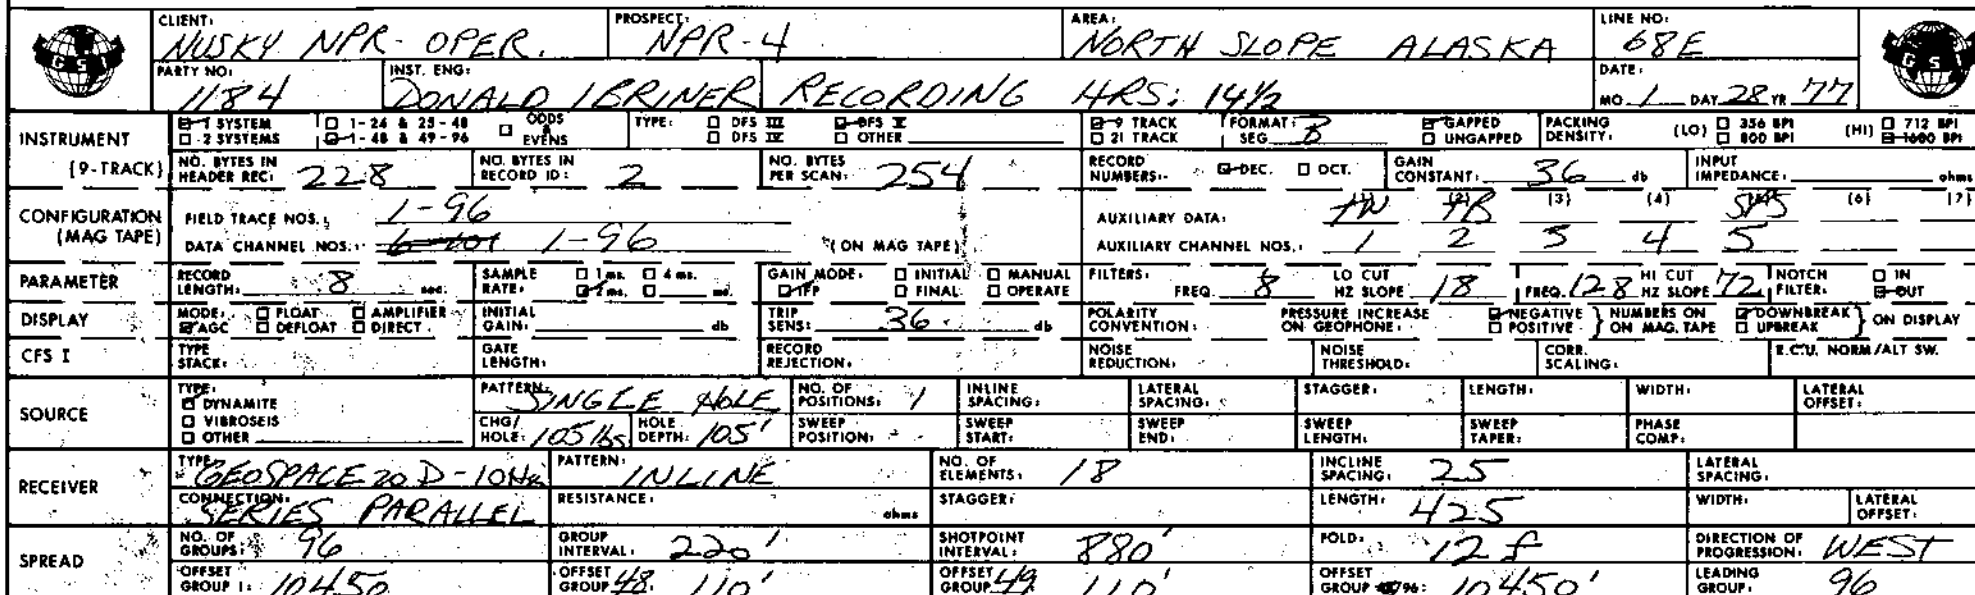 CLIENT: NUSKY NPR- OPER. PROSPECT: NPR-4 AREA: NORTH SLOPE ALASKA LINE NO: 68E
GSI GSI
PARTY NO: 1184 INST. ENG: DONALD IBRINER RECORDING HRS: 14½ DATE: MO. 1 DAY 28 YR 77
INSTRUMENT 1 SYSTEM 1-24 & 25-48 ODDS & EVENS TYPE: DFS III DFS V 9 TRACK FORMAT: GAPPED PACKING DENSITY: (LO) 356 BPI (HI) 712 BPI
2 SYSTEMS 1-48 & 49-96 DFS IV OTHER 21 TRACK SEG B UNGAPPED 800 BPI 1600 BPI
(9-TRACK) NO. BYTES IN HEADER REC: 228 NO. BYTES IN RECORD ID: 2 NO. BYTES PER SCAN: 254 RECORD NUMBERS: DEC. OCT. GAIN CONSTANT: 36 db INPUT IMPEDANCE: ohms
CONFIGURATION (MAG TAPE) FIELD TRACE NOS.: 1-96 AUXILIARY DATA: TB (3) (4) (6) (7)
DATA CHANNEL NOS.: 1-96 (ON MAG TAPE) AUXILIARY CHANNEL NOS.: 1 2 3 4 5
PARAMETER RECORD LENGTH: 8 sec. SAMPLE RATE: 1 ms. 4 ms. 2 ms. ms. GAIN MODE: INITIAL MANUAL IFP FINAL OPERATE FILTERS: FREQ. 8 LO CUT HZ SLOPE 18 FREQ. 128 HI CUT HZ SLOPE 72 NOTCH FILTER: IN OUT
DISPLAY MODE: FLOAT AMPLIFIER AGC DEFLOAT DIRECT INITIAL GAIN: db TRIP SENS: 36 db POLARITY CONVENTION: PRESSURE INCREASE ON GEOPHONE: NEGATIVE POSITIVE NUMBERS ON MAG. TAPE DOWNBREAK UPBREAK ON DISPLAY
CFS I TYPE STACK: GATE LENGTH: RECORD REJECTION: NOISE REDUCTION: NOISE THRESHOLD: CORR. SCALING: R.C.U. NORM/ALT SW.
SOURCE TYPE: DYNAMITE VIBROSEIS OTHER PATTERN: SINGLE HOLE NO. OF POSITIONS: 1 INLINE SPACING: LATERAL SPACING: STAGGER: LENGTH: WIDTH: LATERAL OFFSET:
CHG/HOLE: 105 lbs HOLE DEPTH: 105' SWEEP POSITION: SWEEP START: SWEEP END: SWEEP LENGTH: SWEEP TAPER: PHASE COMP:
RECEIVER TYPE: GEOSPACE 20 D-10Hz PATTERN: INLINE NO. OF ELEMENTS: 18 INCLINE SPACING: 25 LATERAL SPACING:
CONNECTION: SERIES PARALLEL RESISTANCE: ohms STAGGER: LENGTH: 425 WIDTH: LATERAL OFFSET:
SPREAD NO. OF GROUPS: 96 GROUP INTERVAL: 220' SHOTPOINT INTERVAL: 880' FOLD: 12 f DIRECTION OF PROGRESSION: WEST
OFFSET GROUP 1: 10450 OFFSET GROUP 48: 110' OFFSET GROUP 49: 110' OFFSET GROUP 96: 10450' LEADING GROUP: 96